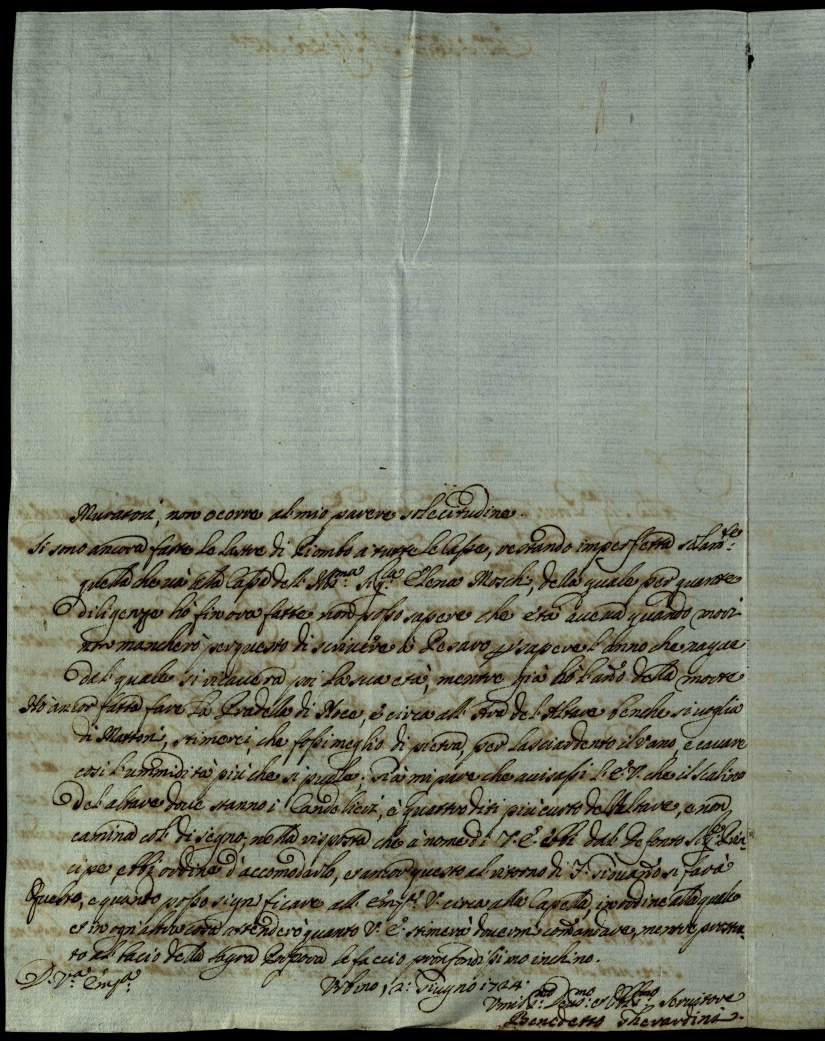 Muratori, non ocorre al mio parere solecitudine.
Si sono ancora fatte le lastre di Piombo a tutte le Casse, restando imperfetta solam.te
quella che và alla Cassa dell' Ill.ma Sig.ra Elena Mosch, della quale per quante
diligenze hò finora fatte non posso sapere che età avea quando morì
non mancherò per questo di scrivere à Pesaro p sapere l'anno che naque
dal quale si ricaverà poi la sua età, mentre già hò l'año della morte
Hò ancor fatta fare la Pradella di Noce, e circa all' Ara del Altare benche si voglia
di Mattoni, stimerei, che fossi meglio di pietra, per lasciar dento il vano, e cavare
così l'ummidità più che si puole. Già mi pare che avisassi V. E. V. che il Scalino
del altare dove stanno i Candelieri, è quattro diti più custo dell' Altare, e non
camina col disegno, nella risposta che à nome di V. E. ebbi dal Defonto Sig.r Prin-
cipe, ebbi ordine d'accomodarlo, e ancor questo al ritorno di si farà
Questo, e quanto posso significare all' Em.za V. circa alla Capella, in ordine alla quale
et in ogn'altra cosa attenderò quanto V. E. stimerà dovermi comandare, mentre prostra-
to al bacio della Sagra Porpora le faccio profondissimo inchino.
D. V.ra Em.za
Urbino, 2: Giugno 1724.
Umil.mo Dev.mo et Obb.mo Servitore
Benedetto Gherardini.